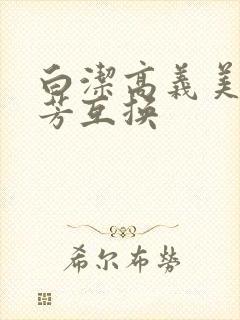 白潔高義美
芳互换
希尔布勞